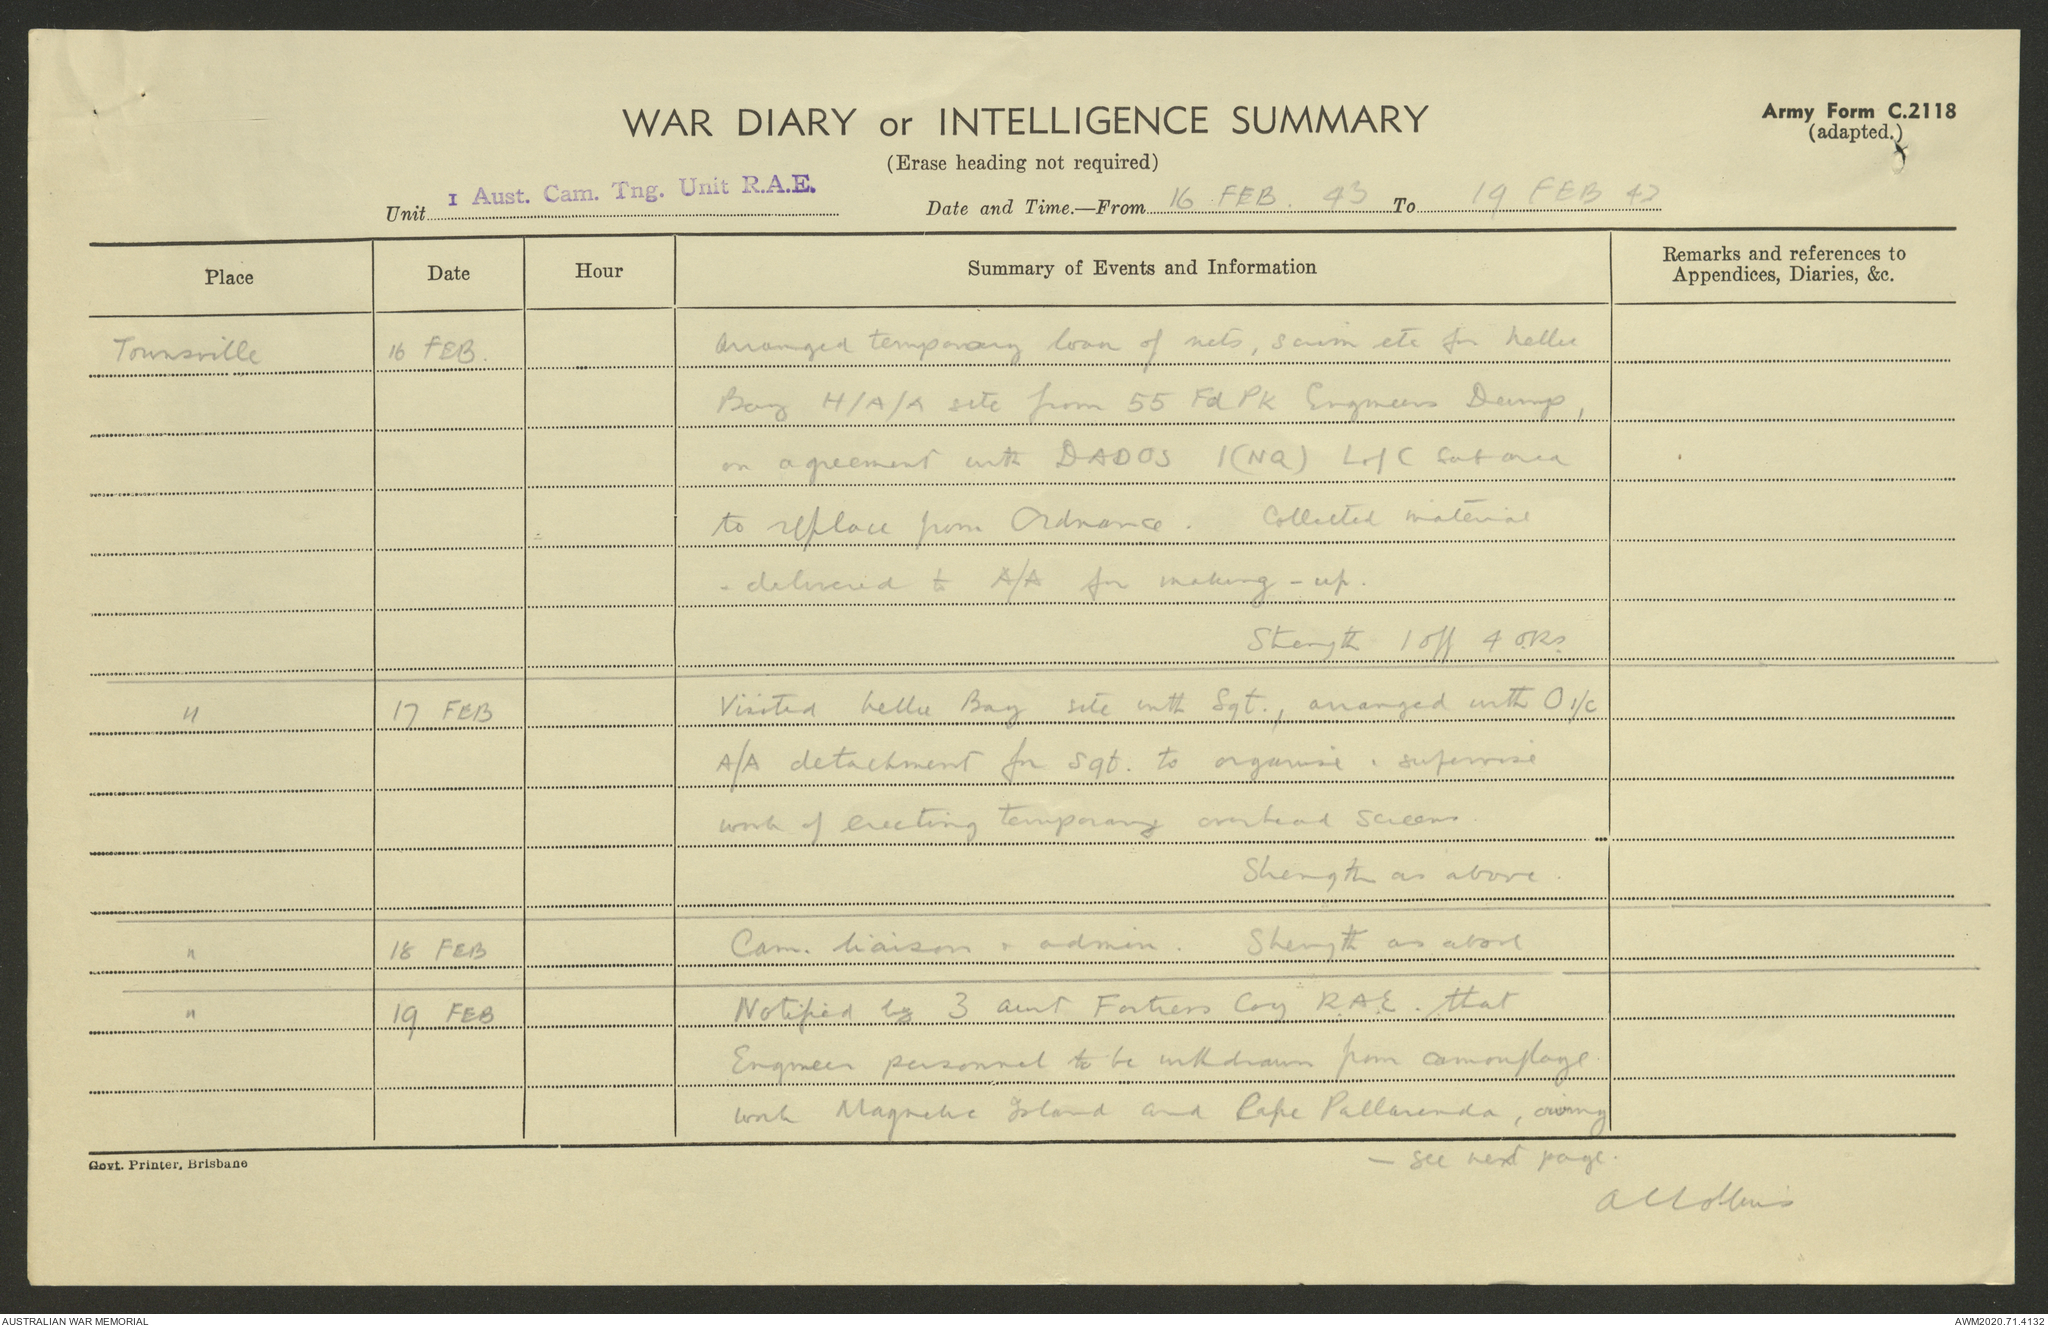 WAR DIARY or INTELLIGENCE SUMMARY
Army Form C.2118
(adapted.)
(Erase heading not required)
Unit 1 Aust. Cam. Tng. Unit R.A.E.
Date and Time.—From 16 FEB. 43 To 19 FEB 43
Place Date Hour Summary of Events and Information Remarks and references to Appendices, Diaries, &c.
Townsville 16 FEB. Arranged temporary loan of nets, scrim etc for Nellie
Bay H/A/A site from 55 Fd Pk Engineers Dump,
on agreement with DADOS 1(NQ) L of C Sub area
to replace from Ordnance. Collected material
- delivered to A/A for making-up.
Strength 1 off 4 ORs.
" 17 FEB Visited Nellie Bay site with Sgt., arranged with O i/c
A/A detachment for Sgt. to organise & supervise
work of erecting temporary overhead screens.
Strength as above.
" 18 FEB Cam. liaison & admin. Strength as above
" 19 FEB Notified by 3 Aust Fortress Coy R.A.E. that
Engineer personnel to be withdrawn from camouflage
work Magnetic Island and Cape Pallarenda, owing
Govt. Printer, Brisbane
— see next page.
AUSTRALIAN WAR MEMORIAL
AWM2020.71.4132